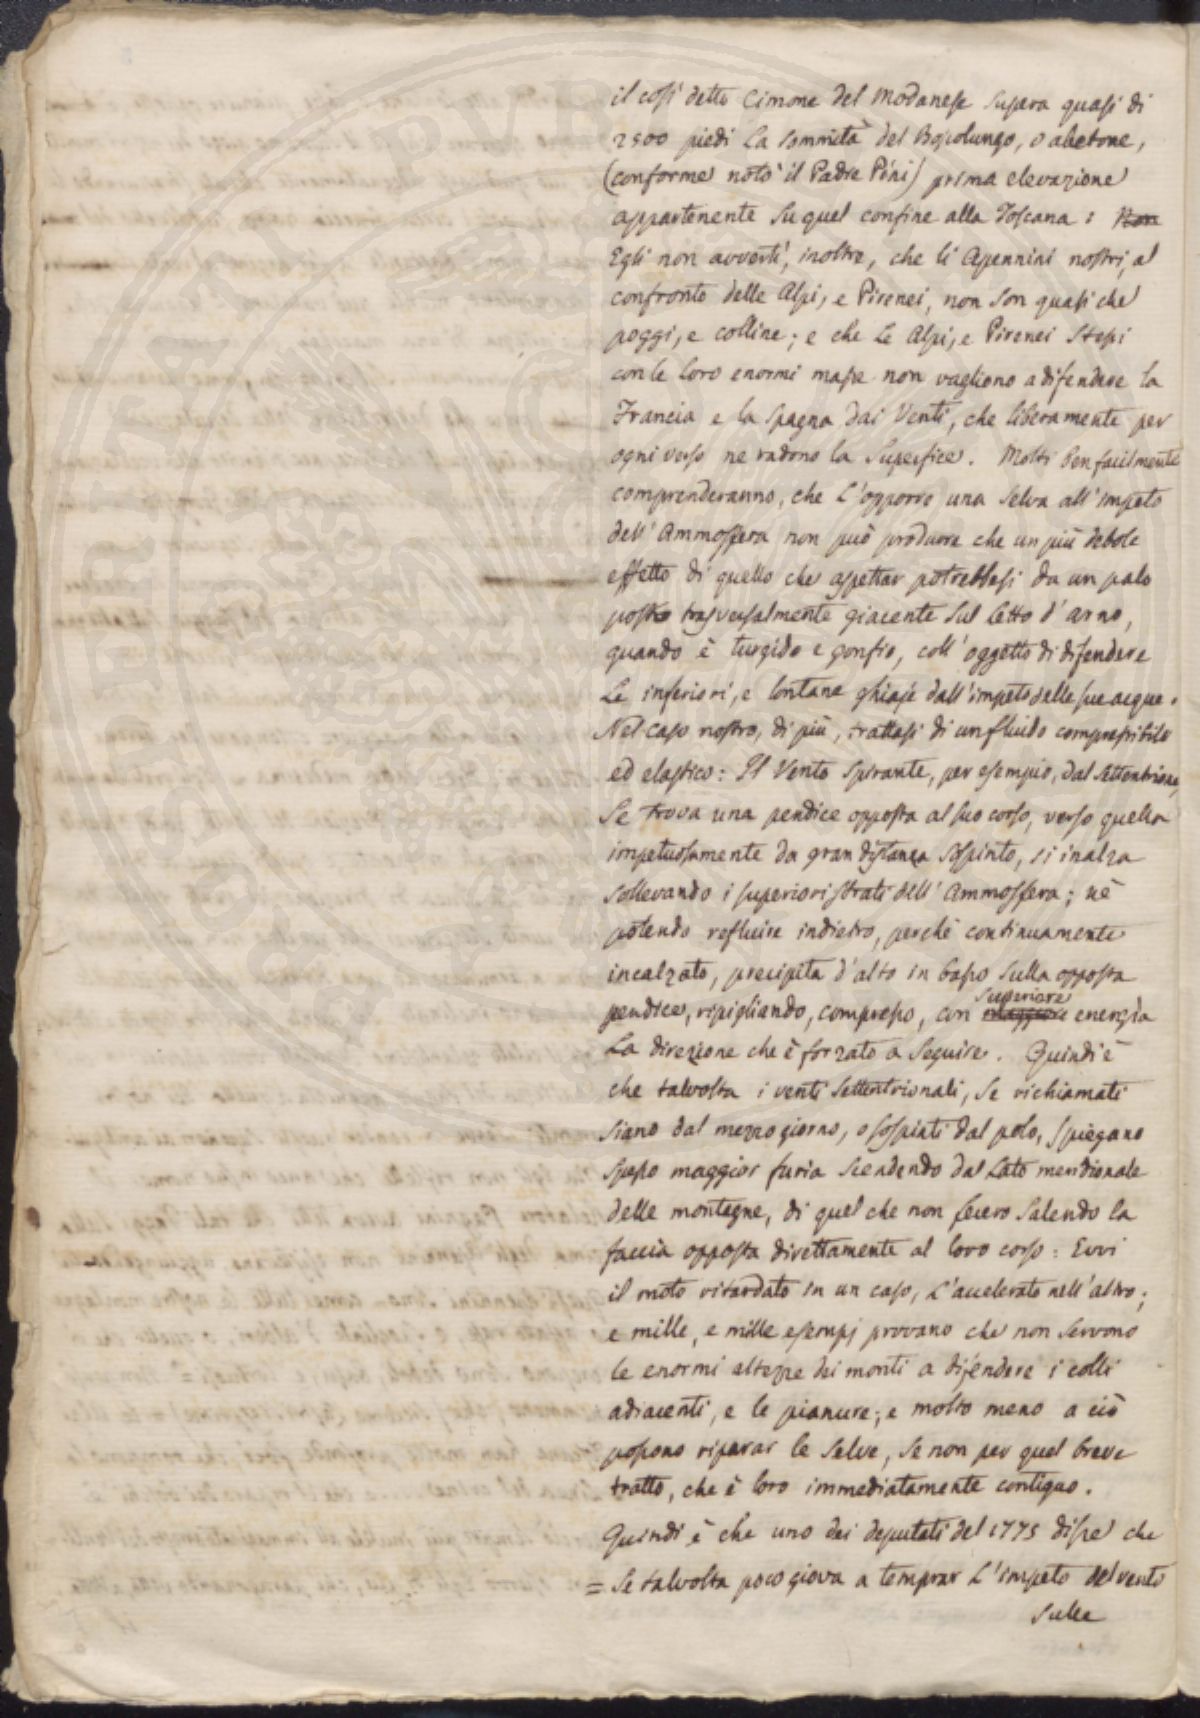 il così detto Cimone del Modanese supera quasi di
2500 piedi la sommità del Boscolungo, o abetone,
(conforme notò il Padre Pini) prima elevazione
appartenente su quel confine alla Toscana: Non
Egli non avvertì, inoltre, che li Apennini nostri, al
confronto delle Alpi, e Pirenei, non son quasi che
poggi, e colline; e che le Alpi, e Pirenei stessi
con le loro enormi masse non vagliono a difendere la
Francia e la Spagna dai Venti, che liberamente per
ogni verso ne radono la superfice. Molti ben facilmente
comprenderanno, che l'opporre una selva all'impeto
dell'Ammosfera non può produrre che un più debole
effetto di quello che aspettar potrebbesi da un palo
posto trasversalmente giacente sul letto d'arno,
quando è turgido e gonfio, coll'oggetto di difendere
le inferiori, e lontane ghiaje dall'impeto delle sue acque.
Nel caso nostro, di più, trattasi di un fluido compressibile
ed elastico: Il Vento spirante, per esempio, dal settentrione,
se trova una pendice opposta al suo corso, verso quella
impetuosamente da gran distanza sospinto, si inalza
sollevando i superiori strati dell'Ammosfera; nè
potendo refluire indietro, perchè continuamente
incalzato, precipita d'alto in basso sulla opposta
superiore
pendice, ripigliando, compresso, con maggiore energìa
la direzione che è forzato a seguire. Quindi è
che talvolta i venti settentrionali, se richiamati
siano dal mezzogiorno, o sospinti dal polo, spiegano
spesso maggior furia scendendo dal lato meridionale
delle montagne, di quel che non fecero salendo la
faccia opposta direttamente al loro corso: Evvi
il moto ritardato in un caso, l'accelerato nell'altro;
e mille, e mille esempj provano che non servono
le enormi altezze dei monti a difendere i colli
adiacenti, e le pianure; e molto meno a ciò
possono riparar le selve, se non per quel breve
tratto, che è loro immediatamente contiguo.
Quindi è che uno dei deputati del 1775 disse che
= se talvolta poco giova a temprar l'impeto del vento
sulle